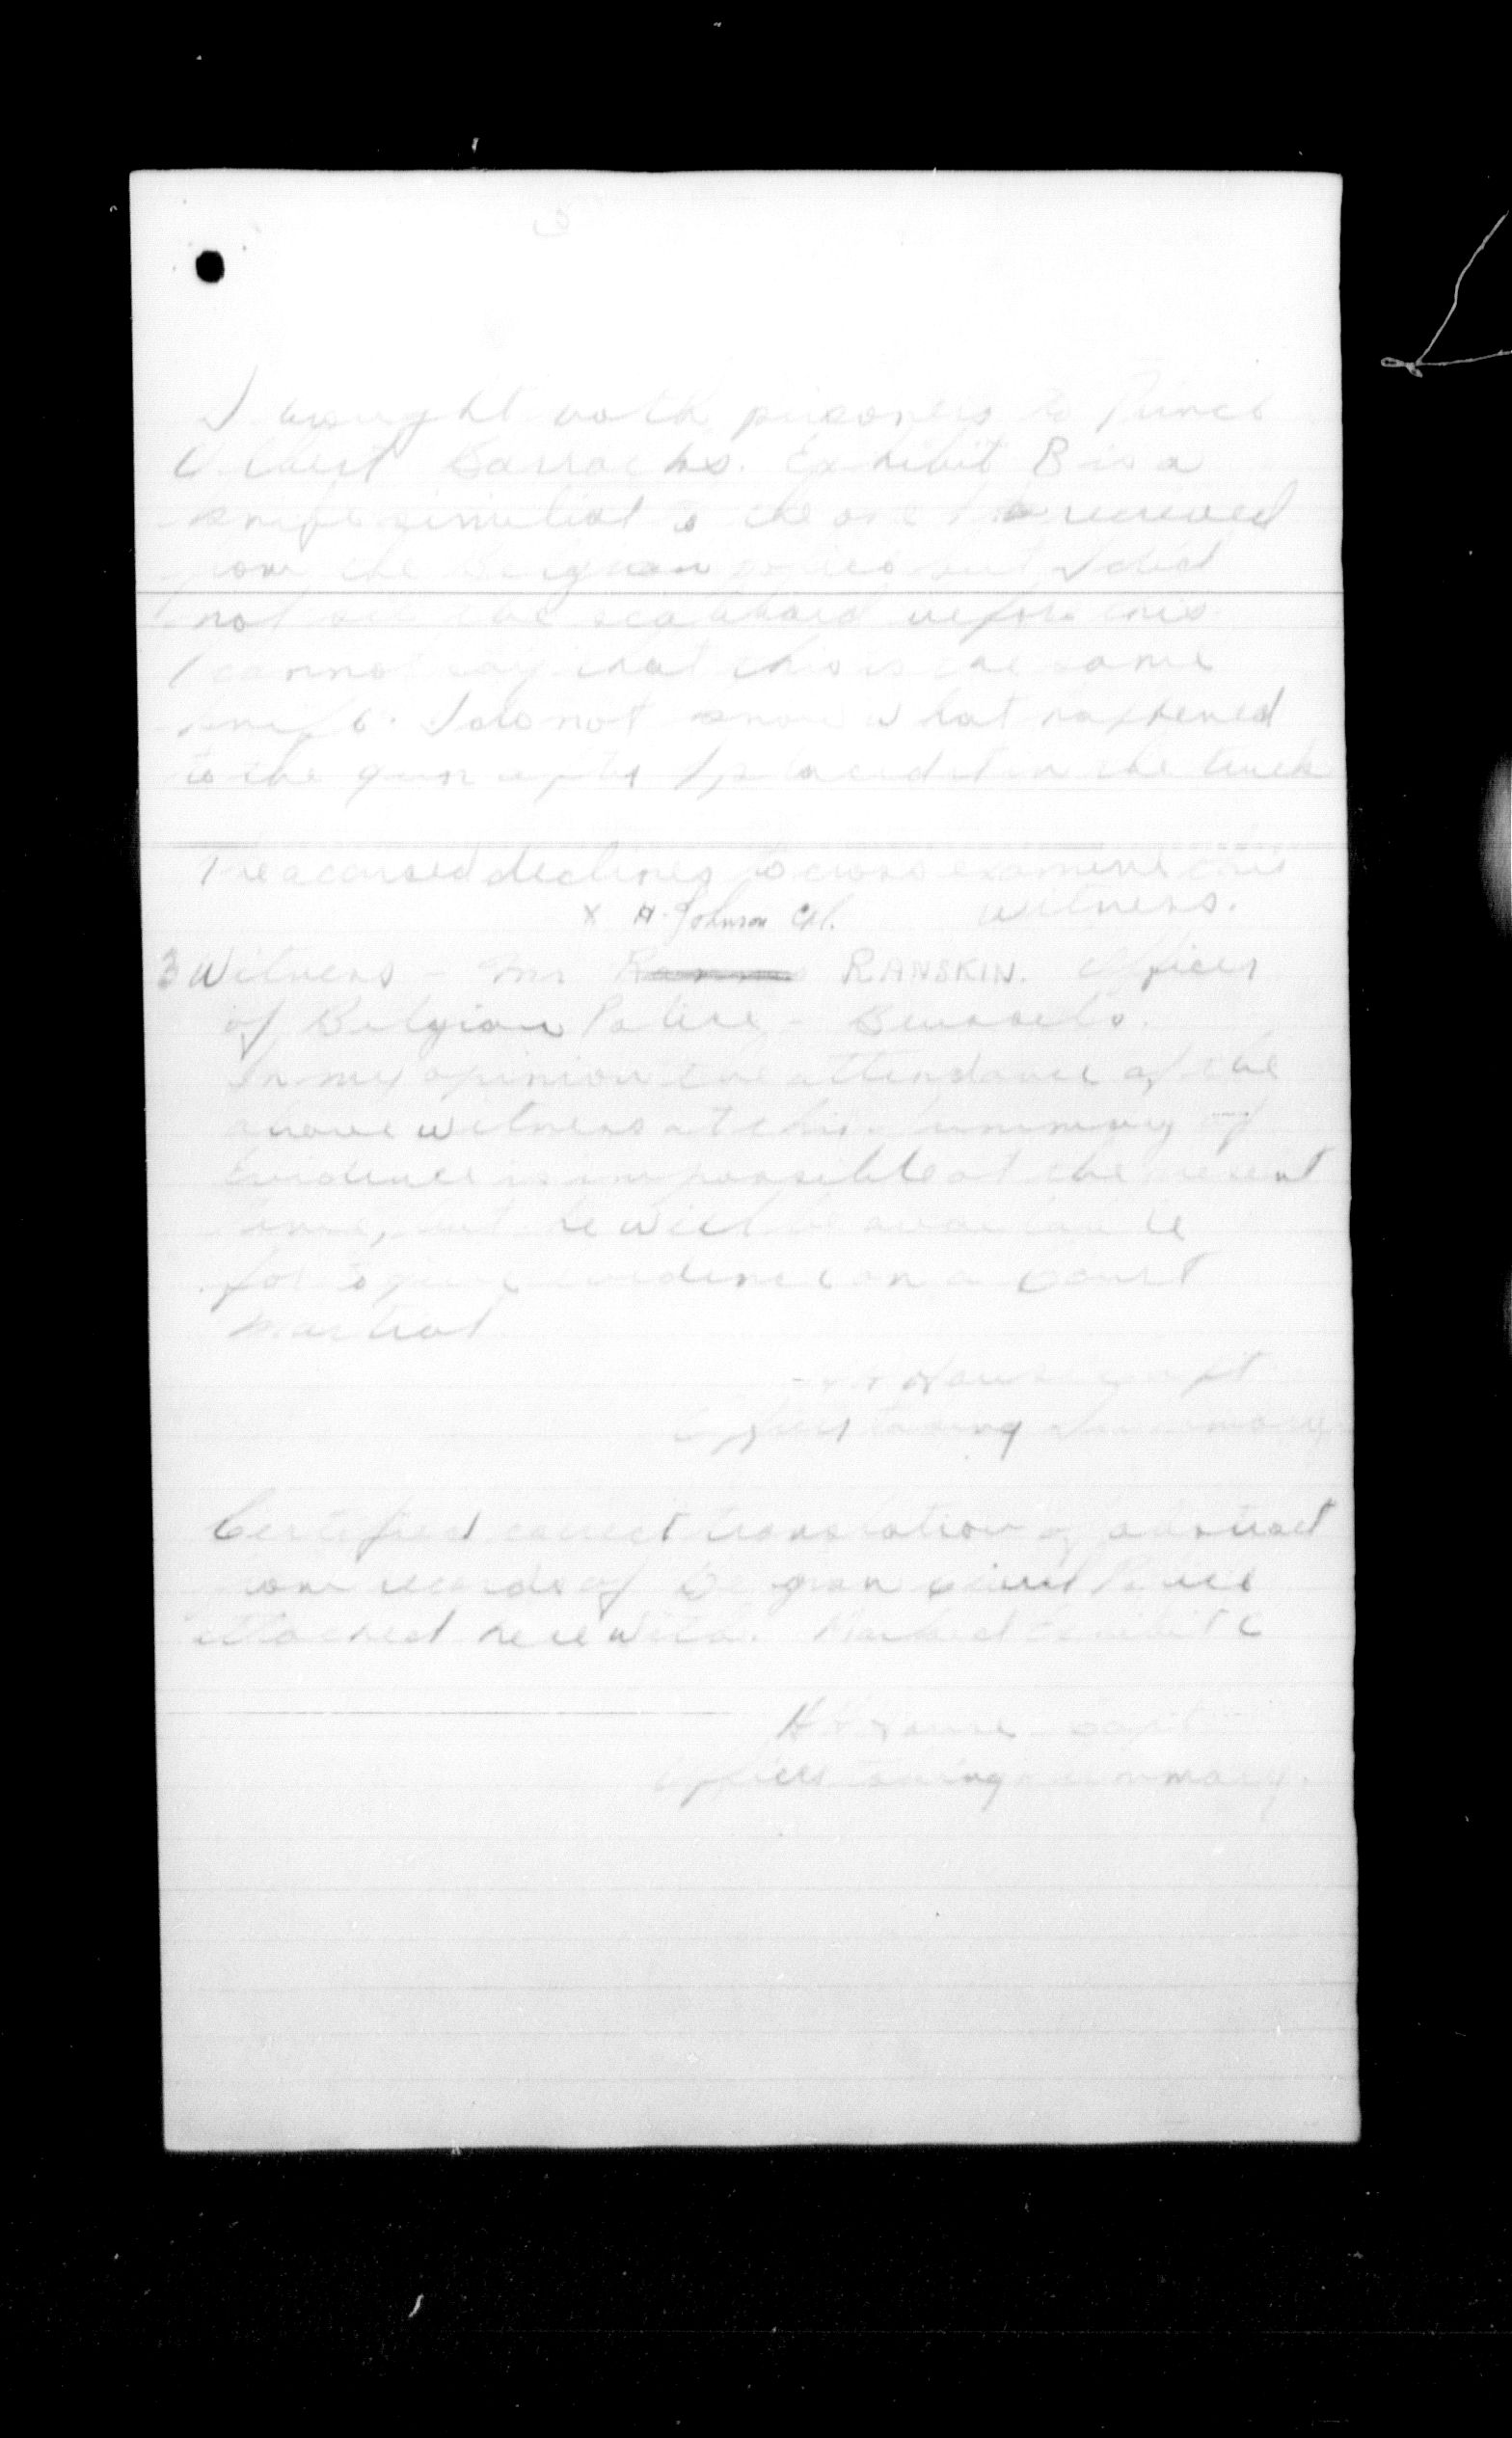 I brought both prisoners to Prince
Albert Barracks. Exhibit B is a
knife similiar to the one I received
from the Belgian police but I did
not see the scabbard before this
I cannot say that this is the same
knife. I do not know what happened
to the gun after I placed it in the truck
The accused declines to cross examine this
witness.
x H. Johnson Cpl.
3 Witness - Mr RANSKIN. Officer
of Belgian Police - Brussels.
In my opinion the attendance of the
above witness at this Summary of
Evidence is impossible at the present
time, but he will be available
for to give evidence on a Court
Martial
Capt
Officer taking Summary
Certified correct translation of abstract
from records of Belgian Police
attached herewith. Marked Exhibit C
Capt
Officer taking summary.